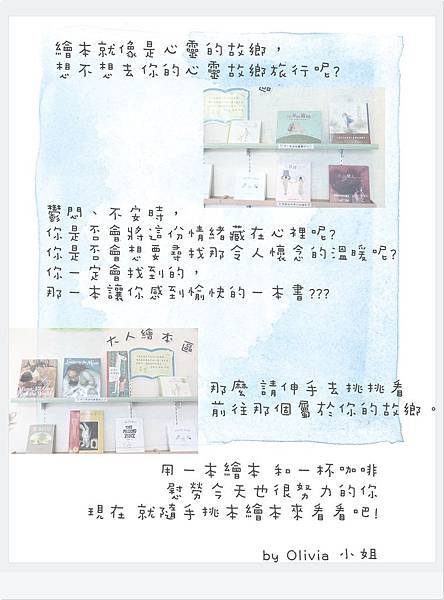 繪本就像是心靈的故鄉，
想不想去你的心靈故鄉旅行呢?
鬱悶、不安時，
你是否會將這份情緒藏在心裡呢?
你是否會想要尋找那令人懷念的溫暖呢?
你一定會找到的，
那一本讓你感到愉快的一本書???
大人繪本 區
那麼 請伸手去挑挑看
前往那個屬於你的故鄉。
用一本繪本 和一杯咖啡
慰勞今天也很努力的你
現在 就隨手挑本繪本來看看吧!
by Olivia 小姐